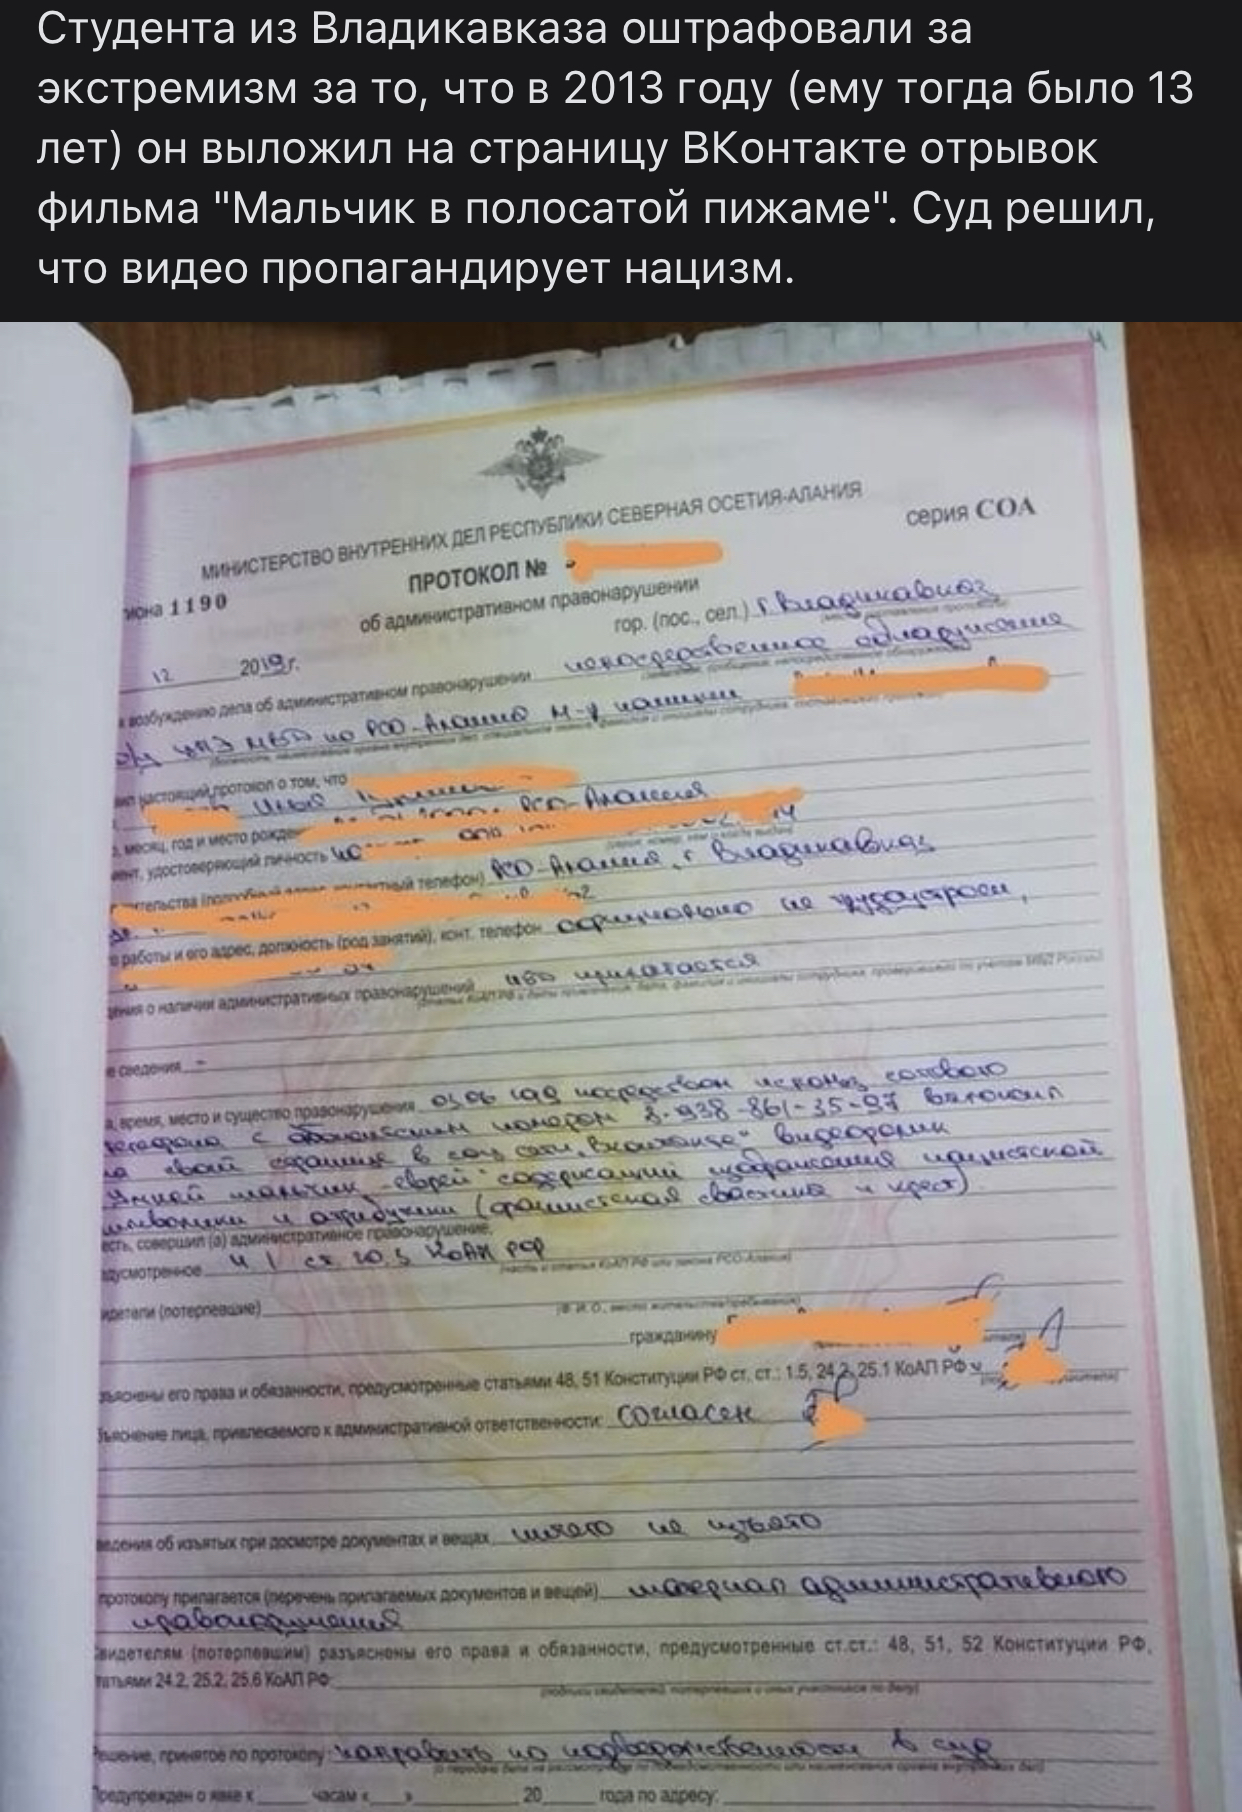 Студента из Владикавказа оштрафовали за
экстремизм за то, что в 2013 году (ему тогда было 13
лет) он выложил на страницу ВКонтакте отрывок
фильма "Мальчик в полосатой пижаме". Суд решил,
что видео пропагандирует нацизм.
МИНИСТЕРСТВО ВНУТРЕННИХ ДЕЛ РЕСПУБЛИКИ СЕВЕРНАЯ ОСЕТИЯ-АЛАНИЯ
серия СОА
ПРОТОКОЛ №
иона 1190
об административном правонарушении
гор. (пос., сел.) г. Владикавказ
12 2019 г.
к возбуждению дела об административном правонарушении непосредственное обнаружение
о/у ЦПЭ МВД по РСО-Алания м-р полиции
настоящий протокол о том, что
месяц, год и место рожде РСО-Алания
мент, удостоверяющий личность
тельства (подробный адрес, контактный телефон) РСО-Алания, г. Владикавказ
работы и его адрес, должность (род занятий), конт. телефон официально не трудоустроен,
дения о наличии административных правонарушений
е сведения -
а, время, место и существо правонарушения посредством использ. сотового
телефона с абонентским номером 8-938-861-35-97 выложил
на своей странице в соц сети „Вконтакте" видеоролик
мальчик еврей" содержащий изображения нацистской
символики и атрибутики (фашистская свастика и крест)
есть, совершил (а) административное правонарушение,
дусмотренное ч 1 ст. 20.3 КоАП РФ
(часть и статья КоАП РФ или закона РСО-Алания)
идетели (потерпевшие)
(Ф.И.О., место жительства/пребывания)
гражданину
зъяснены его права и обязанности, предусмотренные статьями 48, 51 Конституции РФ ст. ст.: 1.5, 24.2, 25.1 КоАП РФ
бъяснение лица, привлекаемого к административной ответственности: согласен
ведения об изъятых при досмотре документах и вещах ничего не изъято
протоколу прилагается (перечень прилагаемых документов и вещей) материал административного
правонарушения
Свидетелям (потерпевшим) разъяснены его права и обязанности, предусмотренные ст.ст.: 48, 51, 52 Конституции РФ,
татьями 24.2, 25.2, 25.6 КоАП РФ:
(подписи свидетелей, потерпевших и иных участников по делу)
Решение, принятое по протоколу: направить по подведомственности в суд
Предупрежден о явке к часам « » 20 года по адресу: